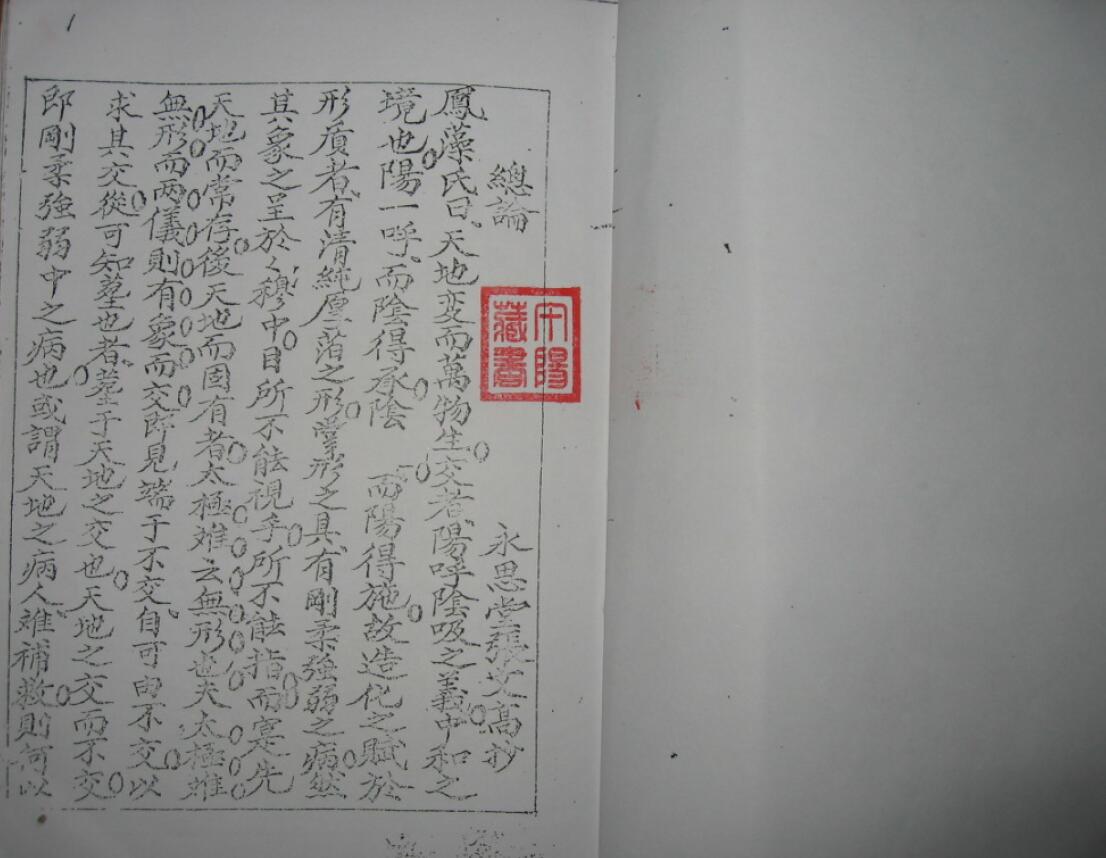 1
總論 永思堂張文高抄
鳳藻氏曰、天地变而萬物生。交者、陽呼陰吸之義。中和之
境也。陽一呼、而陰得承。陰 而陽得施。故造化之賦於
形质者、有清純厚落之形。蒙形之具、有剛柔強弱之病。然
其象之呈於〻穆中。目所不能視。手所不能指。而寔先
天地而常存。後天地而固有者。太極雖云無形也夫太極雖
無形而两儀則有象而交即見端于不交、自可由不交。以
求其交。從可知墓也者、墓于天地之交也。天地之交而不交。
即剛柔強弱中之病也。或謂天地之病、人雖補救。則何以
陽藏書